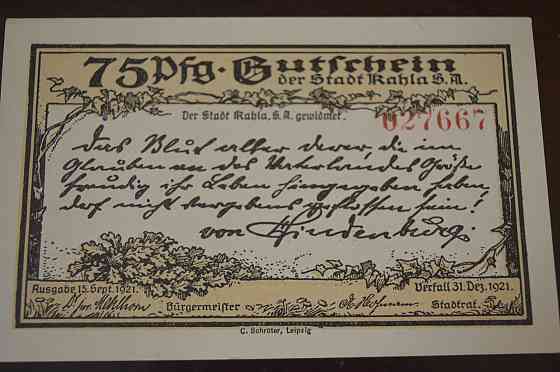 75 Pfg. Gutschein
der Stadt Kahla S.A.
Der Stadt Kahla, S.A. gewidmet.
027667
Das Blut aller derer, die im
Glauben an des Vaterlandes Größe
freudig ihr Leben hingegeben haben,
darf nicht vergebens geflossen sein!
von Hindenburg.
Ausgabe 15. Sept. 1921.
Verfall 31. Dez. 1921.
Bürgermeister
Stadtrat.
C. Schröter, Leipzig